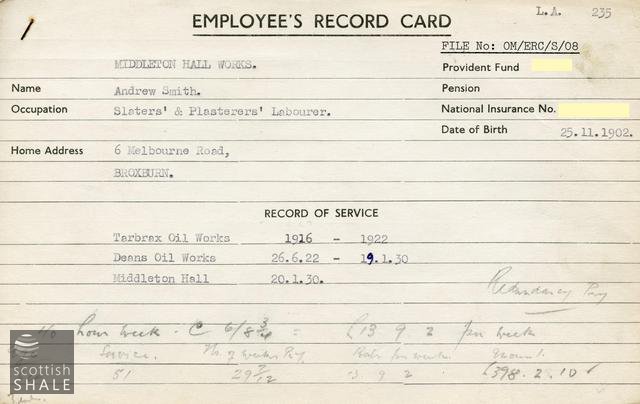 L.A. 235
EMPLOYEE'S RECORD CARD
FILE No: OM/ERC/S/08
MIDDLETON HALL WORKS.
Provident Fund
Name Andrew Smith.
Pension
Occupation Slaters' & Plasterers' Labourer.
National Insurance No.
Date of Birth 25.11.1902.
Home Address 6 Melbourne Road,
BROXBURN.
RECORD OF SERVICE
Tarbrax Oil Works 1916 - 1922
Deans Oil Works 26.6.22 - 19.1.30
Middleton Hall 20.1.30.
Redundancy Pay
40 hour week - @ 6/8 3/4 = £13 9 2 per week
Service. No. of weeks Pay Rate per week. Amount.
51 29 7/12 13 9 2 £398.2.10
scottish
SHALE